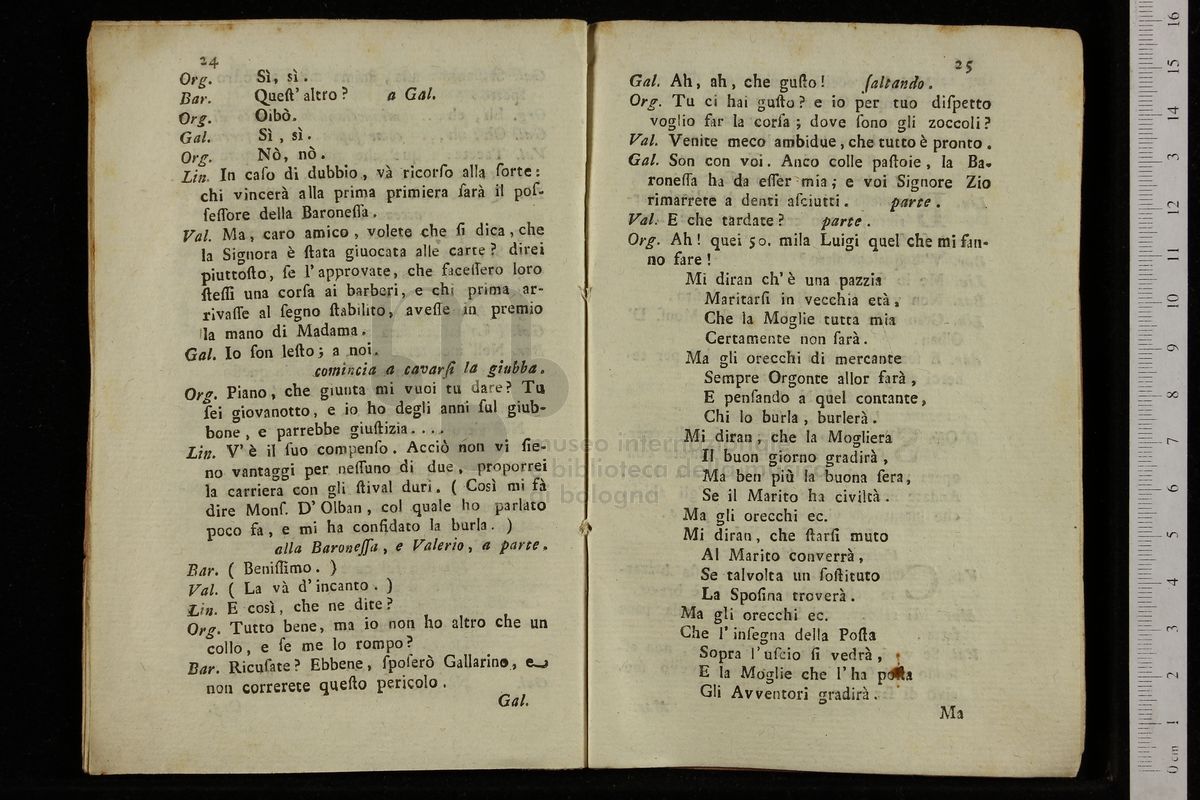 24
Org. Sì, sì.
Bar. Queſt' altro? a Gal.
Org. Oibò.
Gal. Sì, sì.
Org. Nò, nò.
Lin. In caſo di dubbio, và ricorſo alla ſorte:
chi vincerà alla prima primiera ſarà il poſ-
ſeſſore della Baroneſſa.
Val. Ma, caro amico, volete che ſi dica, che
la Signora è ſtata giuocata alle carte? direi
piuttoſto, ſe l'approvate, che faceſſero loro
ſteſſi una corſa ai barberi, e chi prima ar-
rivaſſe al ſegno ſtabilito, aveſſe in premio
la mano di Madama.
Gal. Io ſon leſto; a noi.
comincia a cavarſi la giubba.
Org. Piano, che giunta mi vuoi tu dare? Tu
ſei giovanotto, e io ho degli anni ſul giub-
bone, e parrebbe giuſtizia....
Lin. V' è il ſuo compenſo. Acciò non vi ſie-
no vantaggi per neſſuno di due, proporrei
la carriera con gli ſtival duri. ( Così mi fà
dire Monſ. D' Olban, col quale ho parlato
poco fa, e mi ha confidato la burla. )
alla Baroneſſa, e Valerio, a parte.
Bar. ( Beniſſimo. )
Val. ( La và d' incanto. )
Lin. E così, che ne dite?
Org. Tutto bene, ma io non ho altro che un
collo, e ſe me lo rompo?
Bar. Ricuſate? Ebbene, ſpoſerò Gallarino, e
non correrete queſto pericolo.
Gal.
25
Gal. Ah, ah, che guſto! ſaltando.
Org. Tu ci hai guſto? e io per tuo diſpetto
voglio far la corſa; dove ſono gli zoccoli?
Val. Venite meco ambidue, che tutto è pronto.
Gal. Son con voi. Anco colle paſtoie, la Ba-
roneſſa ha da eſſer mia; e voi Signore Zio
rimarrete a denti aſciutti. parte.
Val. E che tardate? parte.
Org. Ah! quei 50. mila Luigi quel che mi fan-
no fare!
Mi diran ch' è una pazzia
Maritarſi in vecchia età,
Che la Moglie tutta mia
Certamente non ſarà.
Ma gli orecchi di mercante
Sempre Orgonte allor farà,
E penſando a quel contante,
Chi lo burla, burlerà.
Mi diran, che la Mogliera
Il buon giorno gradirà,
Ma ben più la buona ſera,
Se il Marito ha civiltà.
Ma gli orecchi ec.
Mi diran, che ſtarſi muto
Al Marito converrà,
Se talvolta un ſoſtituto
La Spoſina troverà.
Ma gli orecchi ec.
Che l' inſegna della Poſta
Sopra l' uſcio ſi vedrà,
E la Moglie che l' ha poſta
Gli Avventori gradirà.
Ma
museo internazionale
e biblioteca della musica
di bologna
0 cm 1 2 3 4 5 6 7 8 9 10 11 12 13 14 15 16